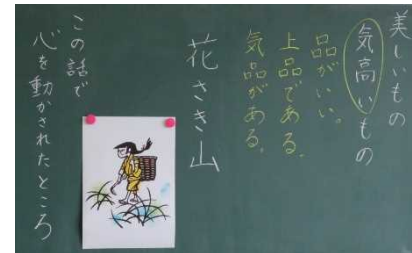 美しいもの
気高いもの
品がいい。
上品である。
気品がある。
花さき山
この話で
心を動かされたところ